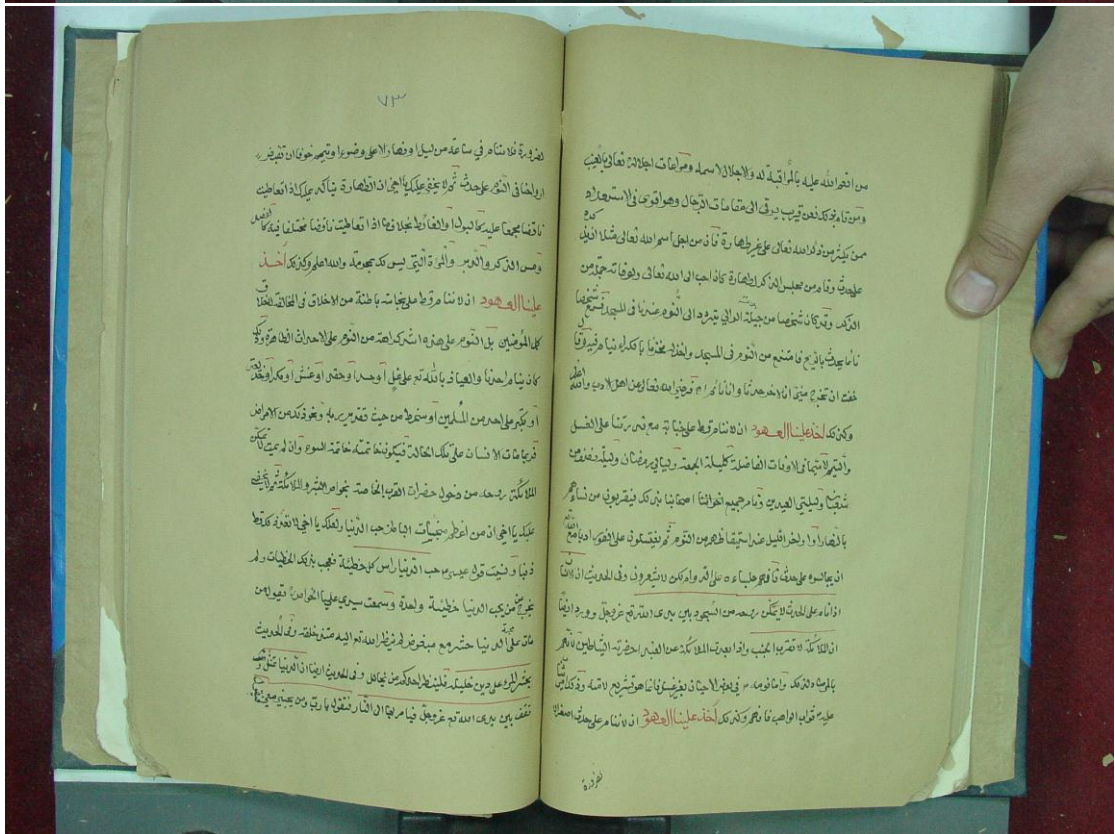 من اتقوا الله عليه بالمراقبة له والاجلال لاسمه ومراعات اجلاله تعالى بالغيب
ومن ذلك فعن قريب يرقى الى مقامات الرجال وهو اقوى فى الاستعداد
ممن يكثر من ذكر الله تعالى على غير طهارة فان من اجل اسم الله تعالى مثلا ان يذكره
على حدث وقام من مجلس الذكر لطهارة كان احب الى الله تعالى
الذكر وقد كان شخصا من يتردد الى النوم عندنا فى المسجد فسمع شخصا
نائما يحدث بالريح فامتنع من النوم فى المسجد وقال
خفت ان تخرج منى انا الاخر حدثا وانا نائم فرضى الله تعالى عن اهل الادب والله اعلم
وكذلك اخذ علينا العهود ان لا ننام قط على جنابة مع قدرتنا على الغسل
والتيمم لا سيما فى الاوقات الفاضلة كليلة الجمعة وليالى رمضان وليلة نصف من
شعبان وليلتى العيدين ونامر جميع اخواننا اصحابنا بذلك فيقربون من نساءهم
بالنهار او اواخر الليل عند استيقاظهم من النوم ثم يغتسلون على الفور ادبا مع الله
ان يجالسوه على حدث فافهم جلساءه على الدوام لكن لا يشعرون وفى الحديث ان
اذا نام على الحدث لا تمكن روحه من السجود بين يدى الله تع عز وجل وورد ايضا
ان الملائكة لا تقرب الجنب واذا بعدت الملائكة عن العبد احضرته الشياطين فافهم
بالمرصاد لذلك واما نومه ص فى بعض الاحيان بغير غسل فانما هو تشريع لامته وذلك
عليه ثواب الواجب فافهم وكذلك اخذ علينا العهود ان لا ننام على حدث اصغر الا
لضرورة
٧٣
لضرورة فلا ننام فى ساعة من ليل او نهار الا على وضوء او تيمم خوفا ان تقبض
ارواحنا فى النوم على حدث ثم لا يخفى عليك يا اخى ان الطهارة يتاكد عليك اذا تعاطيت
ناقضا مجمعا عليه كالبول والغائط بخلاف ما اذا تعاطيت ناقضا مختلفا فيه كالفصد
ومس الذكر والدبر والمرأة التى ليس لك بمحرمة والله اعلم وكذلك اخذ
علينا العهود ان لا ننام قط على نجاسة باطنة من الاخلاق المخالفة لاخلاق
كل المؤمنين بل النوم على هذه اشد كراهة من النوم على الاحداث الظاهرة وذلك
كان ينام احدنا والعياذ بالله تع على غل او حسد او حقد او غش او مكر او خديعة
او تكبر على احد من المسلمين او سخط من حيث تقدير ربه ونحو ذلك من الامراض
فربما مات الانسان على تلك الحالة فيكون خاتمته خاتمة السوء وان لم يمت لا تمكن
الملائكة روحه من دخول حضرات القرب الخاصة بخواص البشر والملائكة ثم لا يخفى
عليك يا اخى ان من اعظم نجاسات الباطن حب الدنيا ولعلك يا اخى لا تعد ذلك قط
ذنبا ونسيت قول عيسى ع حب الدنيا راس كل خطيئة فجمع بذلك الخطيئات ولم
يخرج من يحب الدنيا خطيئة واحدة وسمعت سيدى على الخواص يقول من
مات على محبة الدنيا حشر مع مبغوض لم ينظر الله تع اليه منذ خلقه وفى الحديث
يحشر المرء على دين خليله فلينظر احدكم من يخالل وفى الحديث ايضا ان الدنيا
تقف بين يدى الله تع عز وجل فيامر بها الى النار فتقول يا رب ومن يحبنى معى